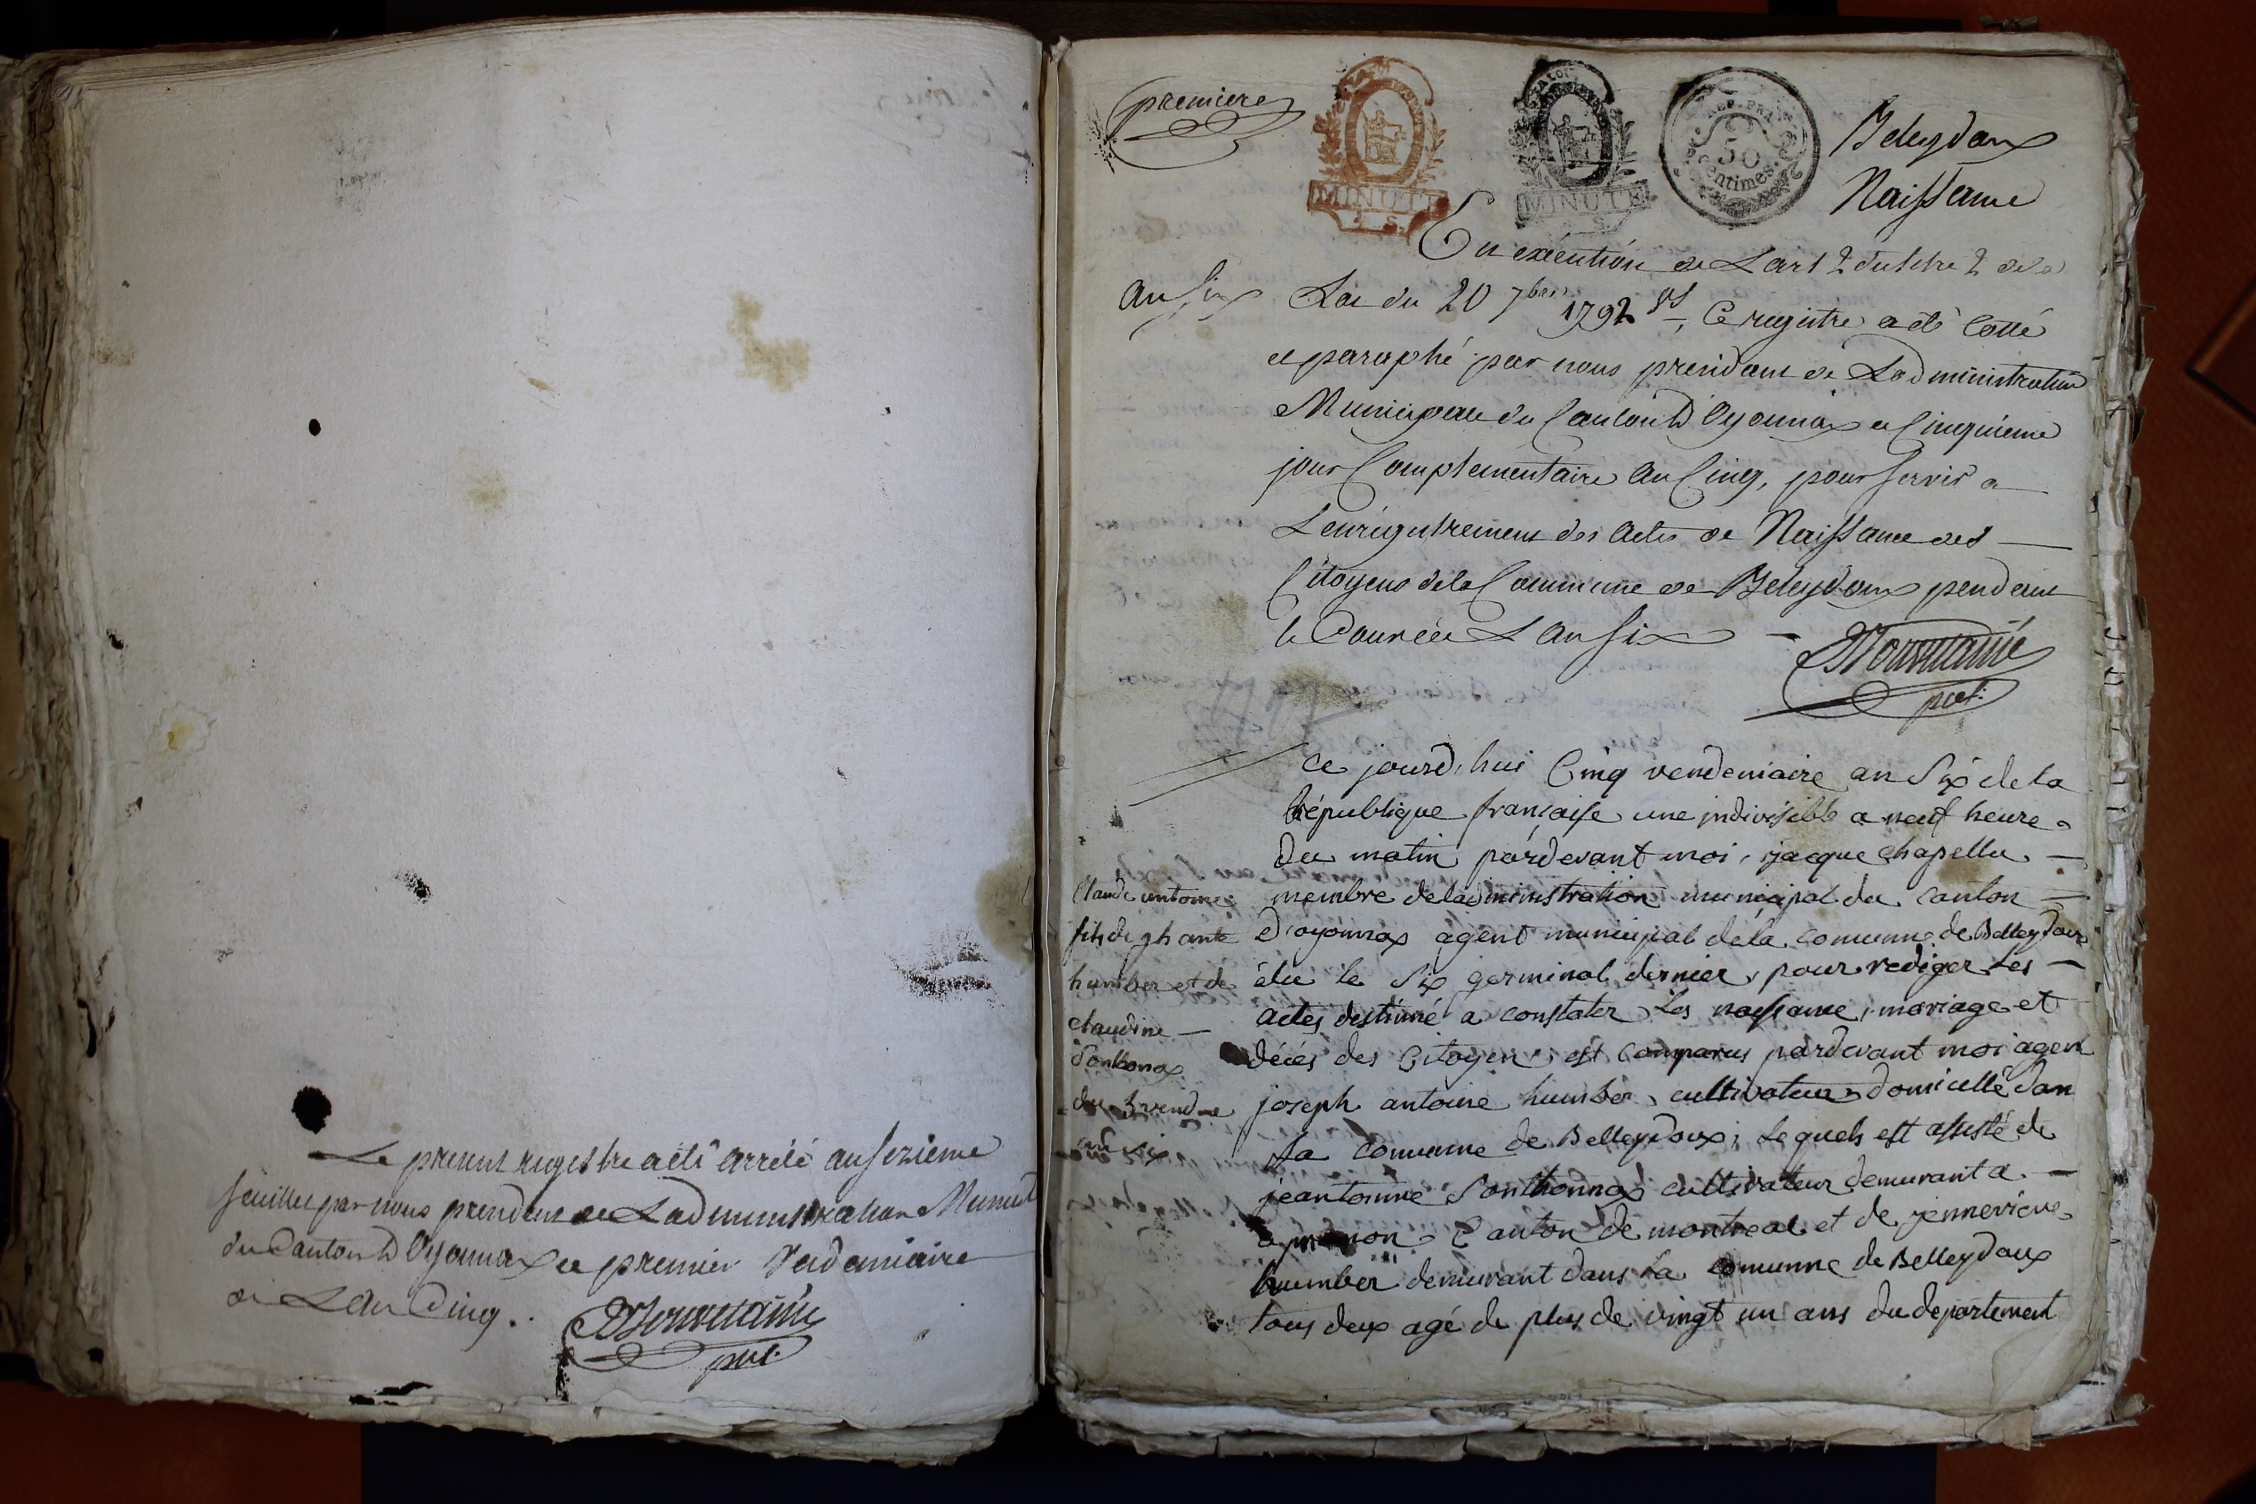 Le present registre a été arrêté au sezième
feuillet par nous president de Ladministration Munici
du Canton D'Oyonnax ce premier Vendemiaire
de L'an Cinq.
pdt.
premiere
MINUTE
MINUTE
REP. FRA
50
centimes
Beleydoux
Naissance
an six
En exécution de L'art 2 du titre 2 de la
Loi du 20 7bre 1792 Vs, Ce registre a été Cotté
et paraphé par nous president de Ladministration
Municipale du Canton D'Oyonnax ce Cinquieme
jour Complementaire An Cinq, pour servir a
L'enrégistrement des Actes de Naissance des
Citoyens de la Commune de Beleydoux pendant
le Cour de L'an Six
pdt.
Claude antoine
fils de jh ante
humber et de
claudine
Sonthonax
du 5 vend.re
an six
Ce jourd'hui Cinq vendemiaire an Six de la
République française une indivisible a neuf heure
du matin pardevant moi, jacque Chapellu
membre deladministration municipal du canton
d'oyonnax agent municipal de la comunne de Belleydoux
élu le Six germinal dernier, pour rediger Les
actes destinné a constater Les naissance, mariage et
décés des Citoyens, est comparus pardevant moi agent
joseph antoine humber, cultivateur domicillé dan
La comunne de Belleydoux, Le quels est assisté de
jeantoinne Sonthonnax cultivateur demurant a
Canton de montreal et de jenneviéve
humber demurant dans La comunne de Belleydoux
tous deux agé de plus de vingt un ans du departement